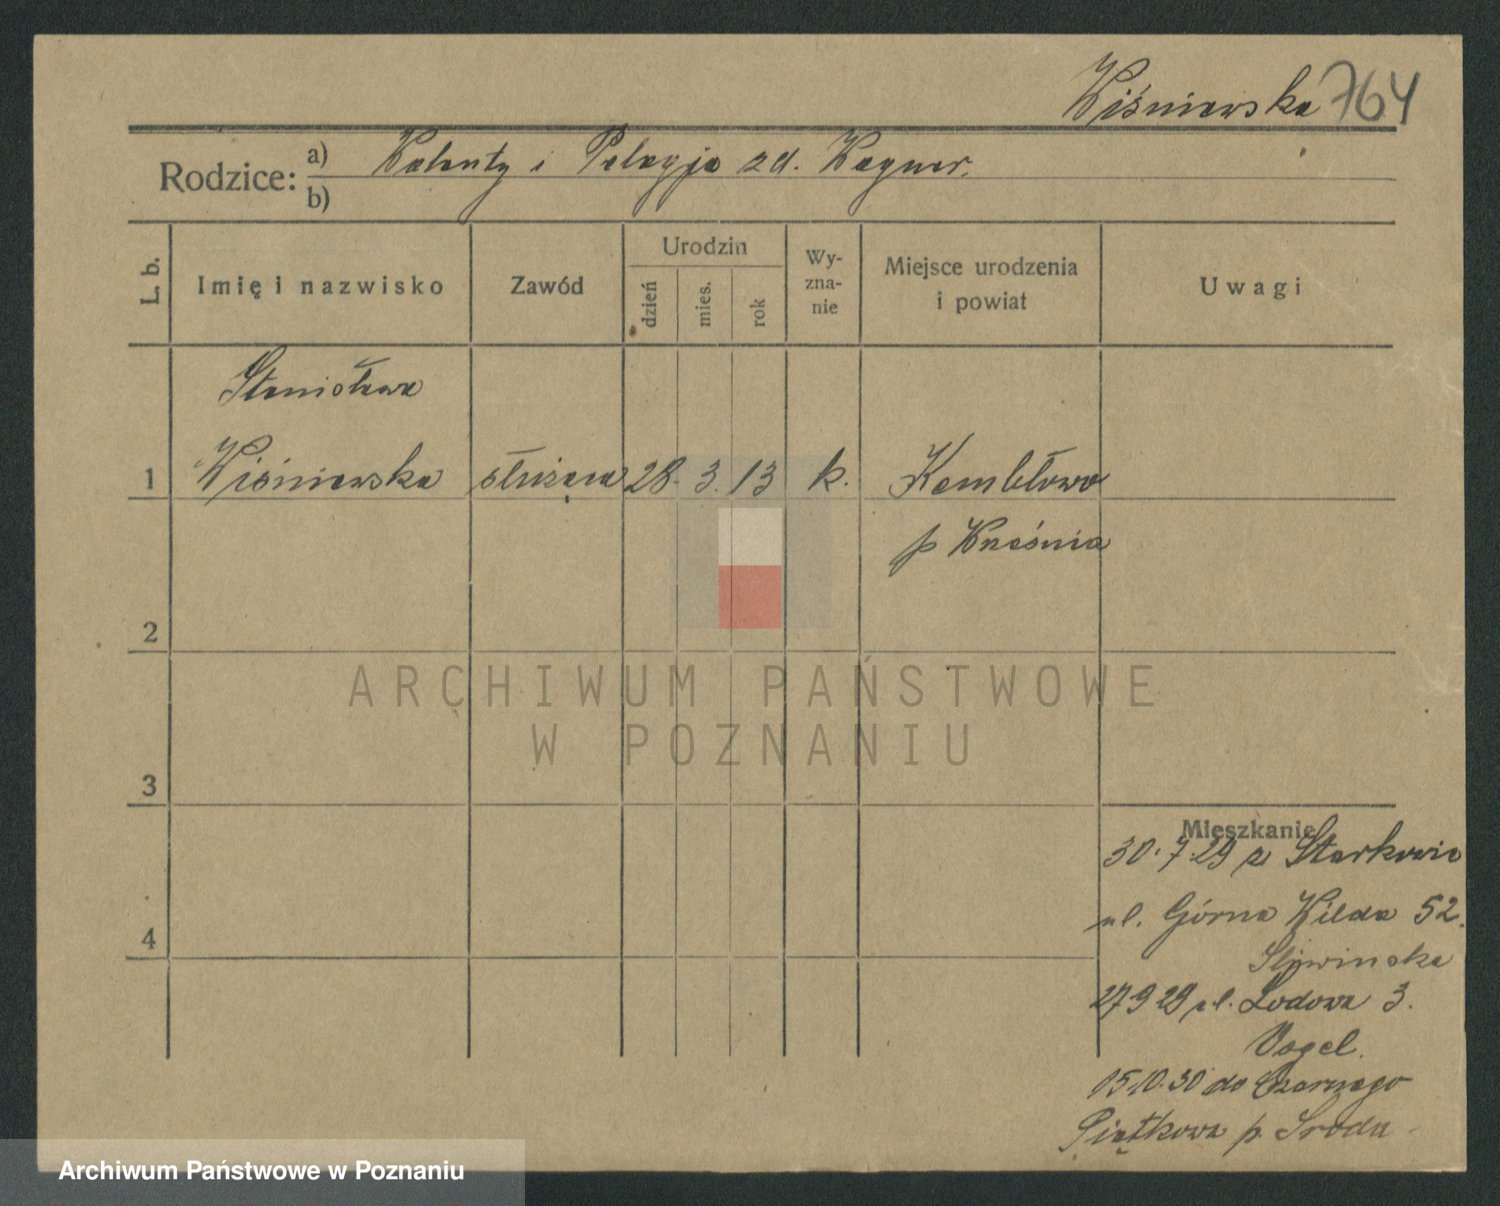 Wiśniewska 764
Rodzice: a) Walenty i Pelagja zd. Wagner.
b)
L. b.
Imię i nazwisko
Zawód
Urodzin
dzień
mies.
rok
Wy-
zna-
nie
Miejsce urodzenia
i powiat
Uwagi
Stanisława
1 Wiśniewska służąca 28. 3. 13 k. Kembłowo
p Września
2
3
4
ARCHIWUM PAŃSTWOWE
W POZNANIU
Mieszkanie
30.7.29 z Starkowic
ul. Górna Wilda 52.
Śliwinska
27 9 29 ul. Lodowa 3.
Vogel.
15.10.30 do Czarnego
Piątkowa p. Sroda
Archiwum Państwowe w Poznaniu